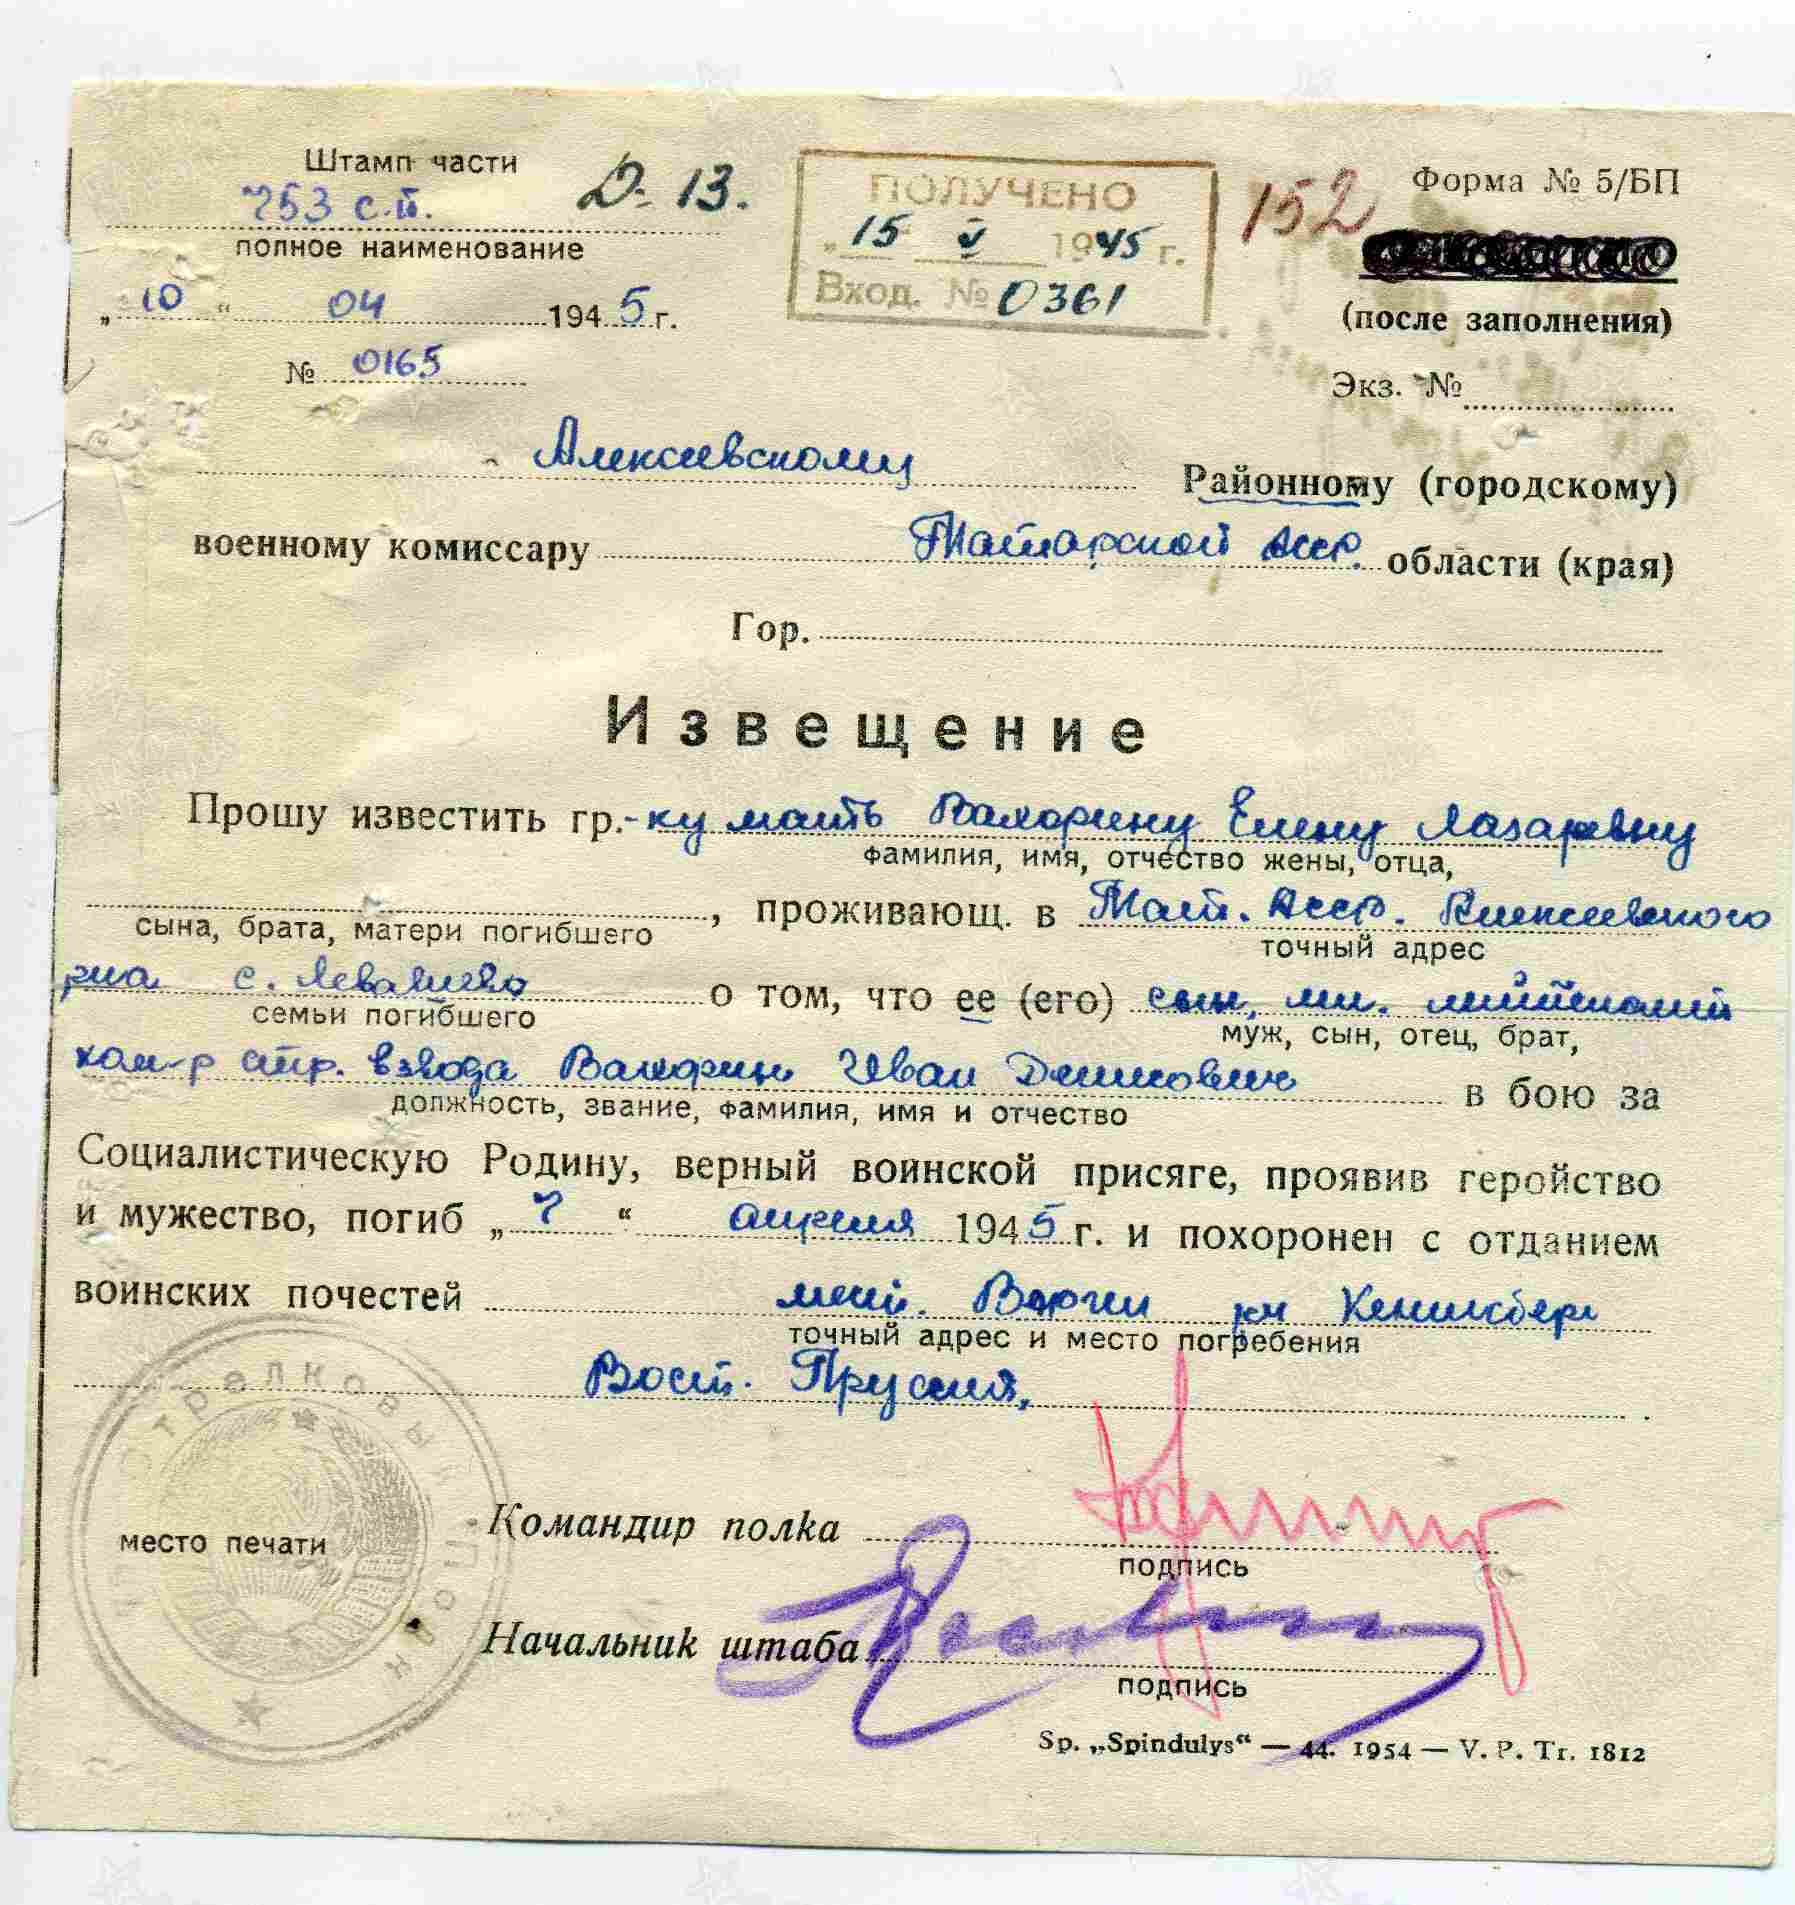 Штамп части
753 с.п.
полное наименование
Д-13.
ПОЛУЧЕНО
„15 V 1945 г.
Вход. № 0361
152
Форма № 5/БП
(после заполнения)
„10“ 04 1945 г.
№ 0165
Экз. №
Алексеевскому Районному (городскому)
военному комиссару Татарской АССР. области (края)
Гор.
Извещение
Прошу известить гр.-ку мать Вахорину Елену Лазаревну
фамилия, имя, отчество жены, отца,
, проживающ. в Тат. АССР. Алексеевского
сына, брата, матери погибшего
точный адрес
р-на с. Левашево о том, что ее (его) сын, мл. лейтенант
семьи погибшего
муж, сын, отец, брат,
ком-р стр. взвода Вахорин Иван Денисович в бою за
должность, звание, фамилия, имя и отчество
Социалистическую Родину, верный воинской присяге, проявив геройство
и мужество, погиб „7“ апреля 1945 г. и похоронен с отданием
воинских почестей Кенигсберг
точный адрес и место погребения
Вост. Пруссия,
Стрелковый полк
место печати
Командир полка
подпись
Начальник штаба
подпись
Sp. „Spindulys“ — 44. 1954 — V. P. Tr. 1812